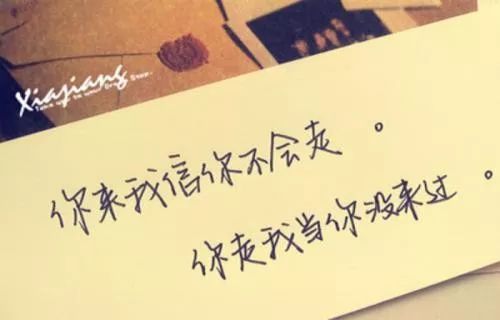 Xiajiang
你来我信你不会走。
你走我当你没来过。